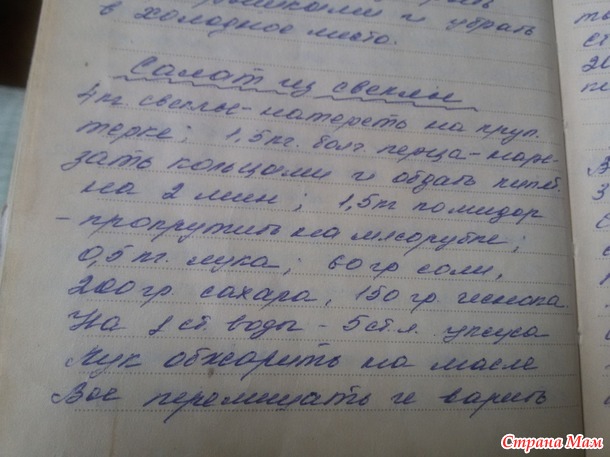 крышками и убрать
в холодное место.
Салат из свеклы
4 кг. свеклы - натереть на круп.
терке; 1,5 кг. болг. перца - наре-
зать кольцами и обдать кипят.
на 2 мин; 1,5 кг помидор
- прокрутить на мясорубке;
0,5 кг. лука; 60 гр соли,
200 гр. сахара, 150 гр. чеснока
На 1 ст. воды - 5 ст.л. уксуса
Лук обжарить на масле
Все перемешать и варить
Страна Мам